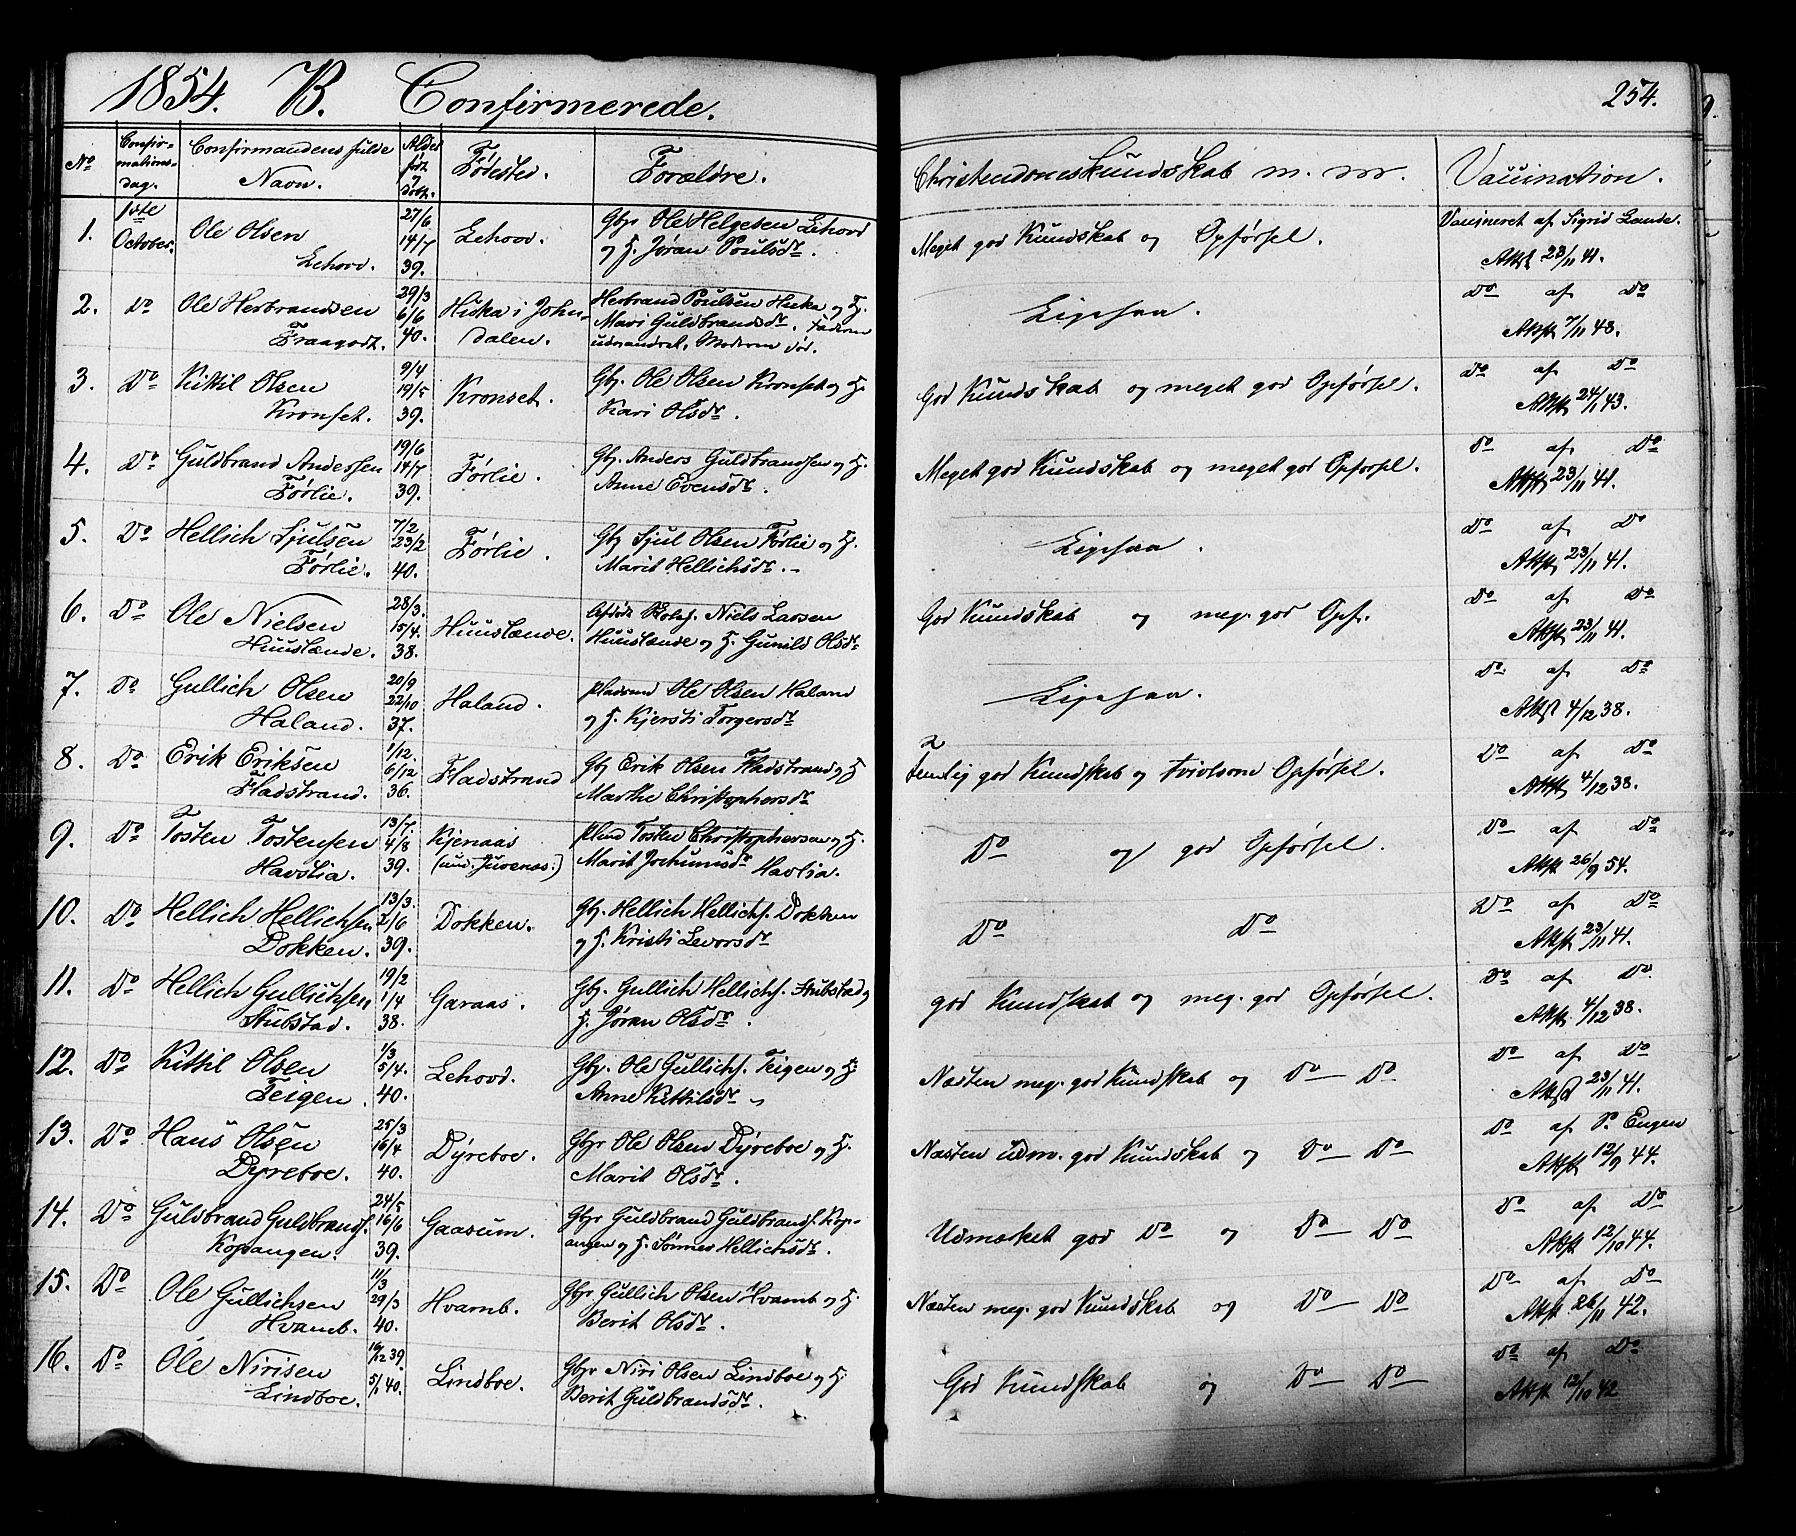 1854. B. Confirmerede. 254.
No Confirmationsdag. Confirmandens fulde Navn. Alder født og døbt. Fødested. Forældre. Christendomskundskab m. m. Vaccination.
1. 1ste October. Ole Olsen Lehovd. 27/6 14/7 39. Lehovd. Gbr Ole Helgesen Lehovd og H. Jøran Poulsdr. Meget god Kundskab og Opførsel. Vaccineret af Sigrid Lande. Attst 23/11 41.
2. Do Ole Herbrandsen Fraagodt. 29/3 6/6 40. Huka i Johndalen. Herbrand Poulsen Huka og H. Mari Guldbrandsdr. Faderen udvandret. Moderen død. Ligesaa. Do af Do Attst 7/11 43.
3. Do Kittil Olsen Kronset. 9/4 19/5 39. Kronset. Gbr. Ole Olsen Kronset og H. Kari Olsdr. God Kundskab og meget god Opførsel. Do af Do Attst 24/1 43.
4. Do Guldbrand Anderssen Førlie. 19/6 14/7 39. Førlie. Gbr. Anders Guldbrandsen og H. Anne Evensdr. Meget god Kundskab og meget god Opførsel. Do af Do Attst 23/11 41.
5. Do Hellich Sjulsen Førlie. 7/2 23/2 40. Førlie. Gbr Sjul Olsen Førlie og H. Marit Hellichsdr. Ligesaa. Do af Do Attst 23/11 41.
6. Do Ole Nielsen Huuslænde. 28/3. 15/4. 38. Huuslænde. Afdøde Niels Larsen Huuslænde og H. Gunild Olsdr God Kundskab og meg. god Opf. Do af Do Attst 23/11 41.
7. Do Gullich Olsen Haland. 20/9 22/10 37. Haland. Pladsmd Ole Olsen Haland og H. Kjersti Torgersdr Ligesaa. Do af Do Attst 4/12 38.
8. Do Erik Eriksen Fladstrand. 1/12. 6/12 36. Fladstrand Gbr Erik Olsen Fladstrand og H. Marthe Christophersdr Temlig god Kundskab og tvivlsom Opførsel. Do af Do Attst 4/12 38.
9. Do Tosten Tostensen Havslia. 13/7. 4/8 39. Kjenaas (und. Juvenes:) Plmd Tosten Christophersen og H. Marit Jochumsdr Havlia. Do og god Opførsel. Do af Do Attst 26/9 54.
10. Do Hellich Hellichsen Dokken. 13/3. 2/6 39. Dokken. Gbr. Hellich Hellichs. Dokken og H. Kristi Levorsdr Do Do Do af Do Attst 23/11 41.
11. Do Hellich Gullichsen Stubstad. 19/2 1/4 38. Garaas. Gbr. Gullich Hellichs. Stubstad og H. Jøran Olsdr. god Kundskab og meg. god Opførsel. Do af Do. Attst 4/12 38.
12. Do Kittil Olsen Teigen. 1/3 5/4 40. Lehovd. Gbr. Ole Gullichs. Teigen og H. Anne Kittilsdr Næsten meg. god Kundskab og Do Do Do af Do Attst 23/11 41.
13. Do Hans Olsen Dyreboe. 25/3 16/4 40. Dyreboe. Gbr Ole Olsen Dyreboe og H. Marit Olsdr. Næsten udm. god Kundskab og Do Do Do af P. Engen Attst 12/9 44.
14. Do Guldbrand Guldbrands. Kopangen. 24/5 16/6 39. Gaasum. Gbr Guldbrand Guldbrands. Kopangen og H. Sønnev Hellichsdr. Udmærket god Do og Do Do Do af Do Attst 12/10 44.
15. Do Ole Gullichsen Hvamb. 11/3 29/3 40. Hvamb. Gbr Gullich Olsen Hvamb og H. Berit Olsdr. Næsten meg. god Kundskab og Do Do Do af Do Attst 26/11 42.
16. Do Ole Nirisen Lindboe. 16/12 39. 5/1 40. Lindboe. Gbr Niri Olsen Lindboe og H. Berit Guldbrandsdr. God Kundskab og Do Do Do af Do Attst 12/10 42